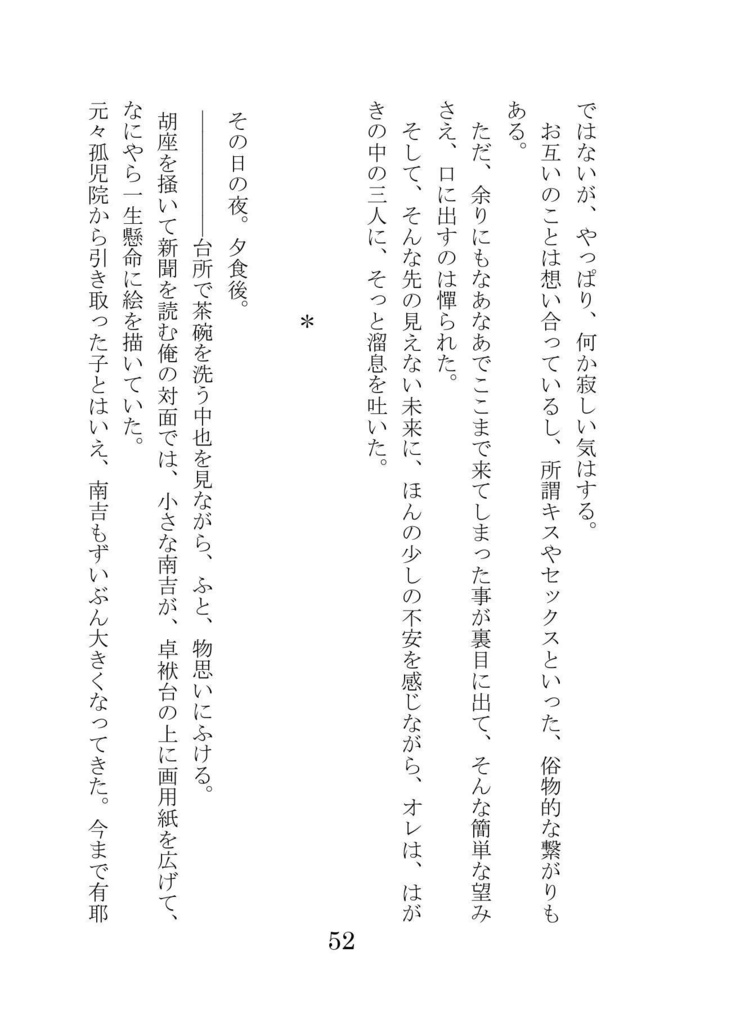 ではないが、やっぱり、何か寂しい気はする。
お互いのことは想い合っているし、所謂キスやセックスといった、俗物的な繋がりも
ある。
ただ、余りにもなあなあでここまで来てしまった事が裏目に出て、そんな簡単な望み
さえ、口に出すのは憚られた。
そして、そんな先の見えない未来に、ほんの少しの不安を感じながら、オレは、はが
きの中の三人に、そっと溜息を吐いた。
＊
その日の夜。夕食後。
――――――台所で茶碗を洗う中也を見ながら、ふと、物思いにふける。
胡座を掻いて新聞を読む俺の対面では、小さな南吉が、卓袱台の上に画用紙を広げて、
なにやら一生懸命に絵を描いていた。
元々孤児院から引き取った子とはいえ、南吉もずいぶん大きくなってきた。今まで有耶
52